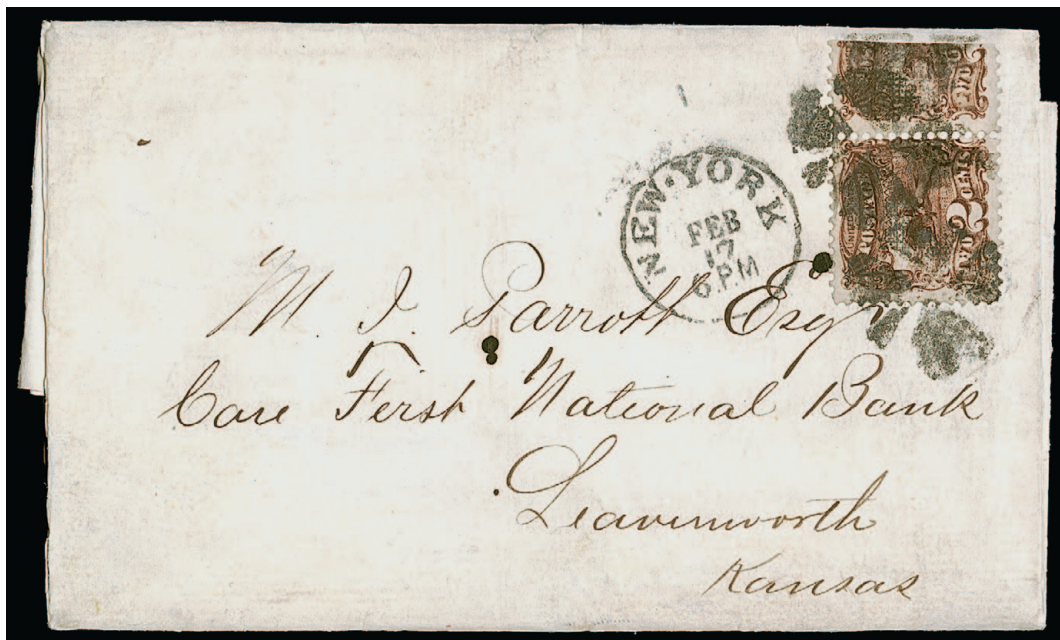 NEW·YORK
FEB
17
6 P.M
TWO 2 CENTS
M. J. Parrott Esqr
Care First National Bank
Leavenworth
Kansas